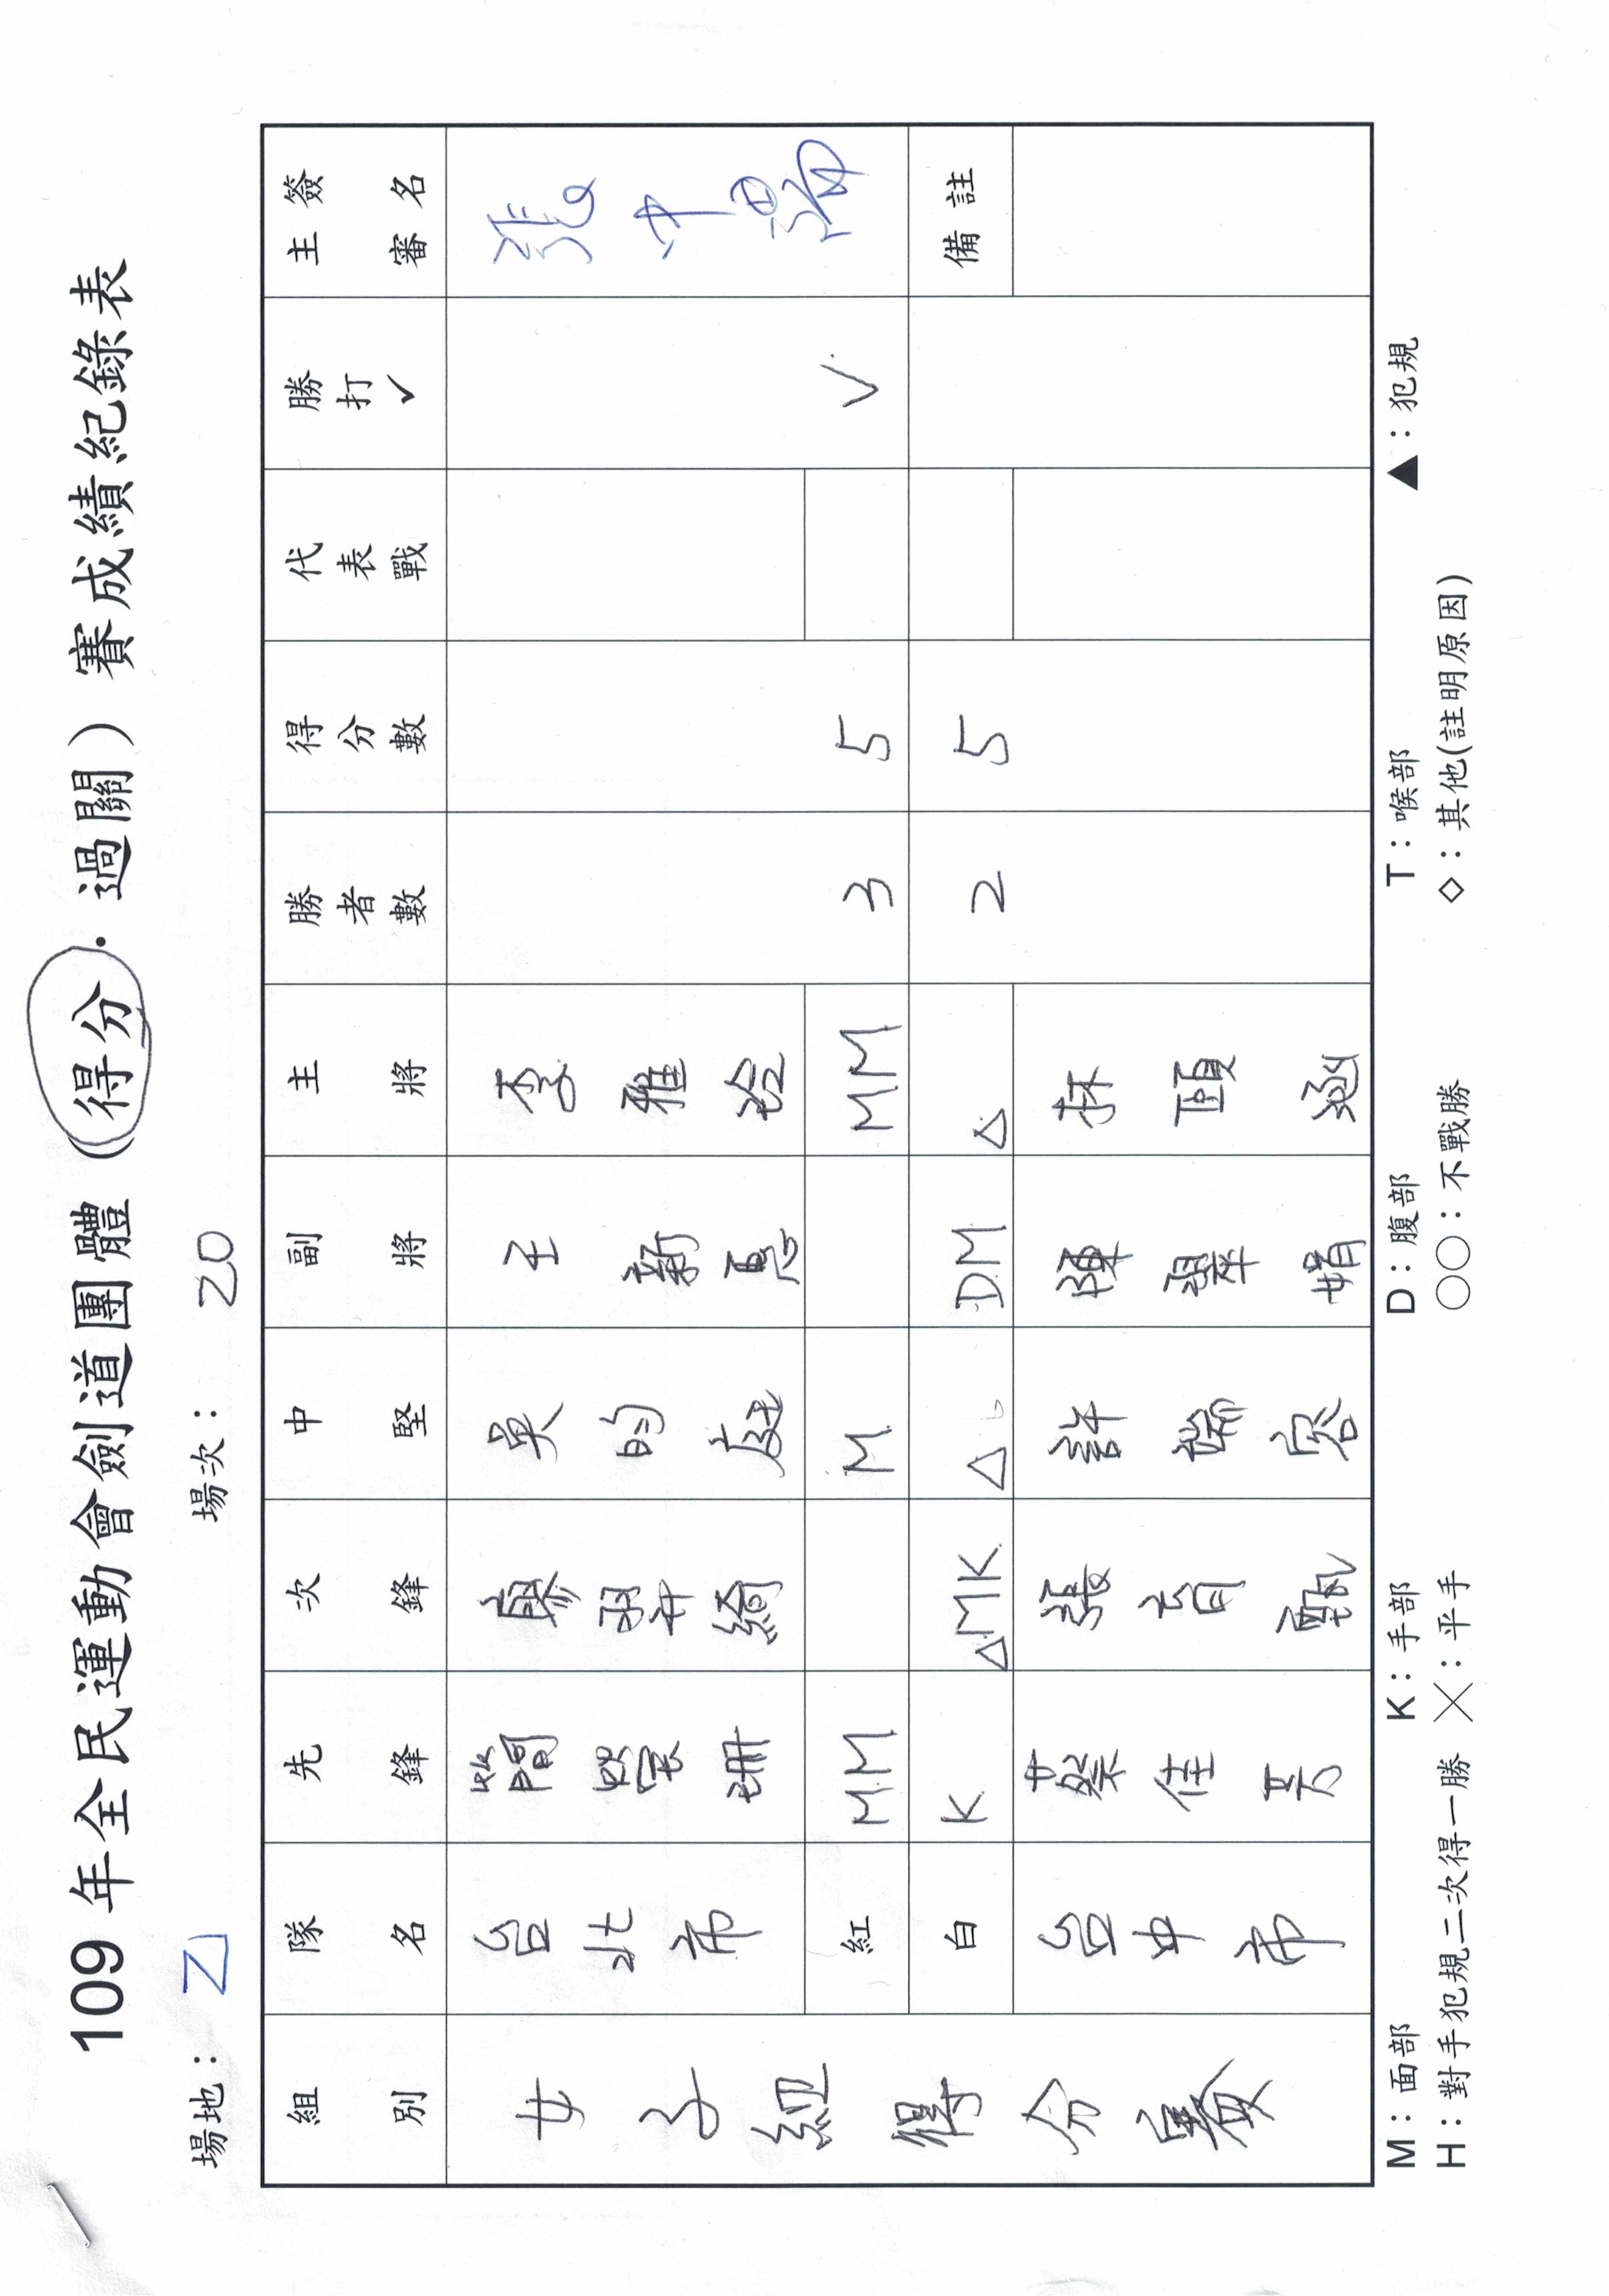 109 年全民運動會劍道團體（得分．過關）賽成績紀錄表
場地： 乙 場次： 20
組別 隊名 先鋒 次鋒 中堅 副將 主將 勝者數 得分數 代表戰 勝打✓ 主審簽名
女子組得分賽 台北市 簡 珊 廖羿綺 吳昀庭 王新惠 李雅玲
紅 MM M MM 3 5 ✓
白 K △MK △ DM △ 2 5 備註
台中市 蔡佳芳 張育甄 許端容 陳翠娟 林頤涵
M：面部 K：手部 D：腹部 T：喉部 ▲：犯規
H：對手犯規二次得一勝 ╳：平手 ○○：不戰勝 ◇：其他(註明原因)